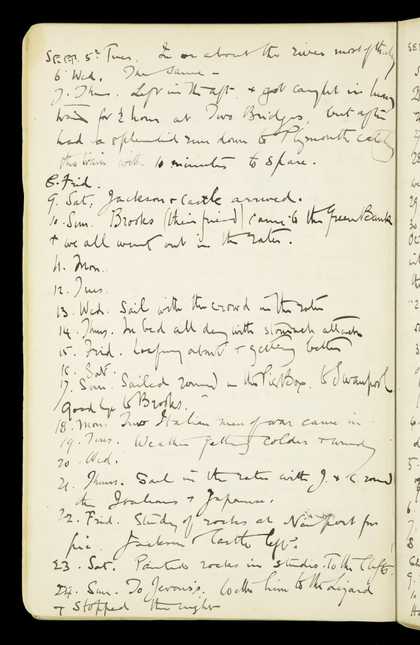 Sept. 5th Tues. In or about the river most of the day
6 Wed. The same -
7. Thurs. Left in the aft. & got caught in heavy
for ½ hour at Two Bridges, but after
had a splendid run down to Plymouth
this train with 10 minutes to spare.
8. Frid.
9. Sat, Jackson & Castle arrived.
10. Sun. Brooks (their friend) came to the Green Bank
& we all went out in the
11. Mon.
12. Tues.
13. Wed. Sail with the crowd in the
14. Thurs. In bed all day with stomach attack
15. Frid. Loafing about & getting better
16. Sat.
17. Sun. Sailed round in the to Swanpool
Good bye to Brooks.
18. Mon. Two Italian men of war came in
19. Tues. Weather getting colder & windy
20. Wed.
21. Thurs. Sail in the with J. & C. round
the Italians & Japanese.
22. Frid. Study of rocks at Newport for
pic. Jackson & Castle left.
23. Sat. Painted rocks in studio. To the Cliff.
24. Sun. To Jevons's. him to the Lizard
& stopped the night